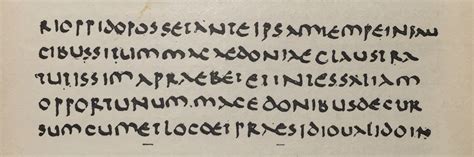 RIOPPIDOPOSSETANTEIPSAMTEMPEINFAU
CIBUSSITUMMACAEDONIAECLAUSTRA
TUTISSIMAPRAEBETETINTESSALIAM
OPPORTUNUM.MACEDONIBUSDECUR
SUMCUMETLOCOETPRAESIDIOUALIDOIN